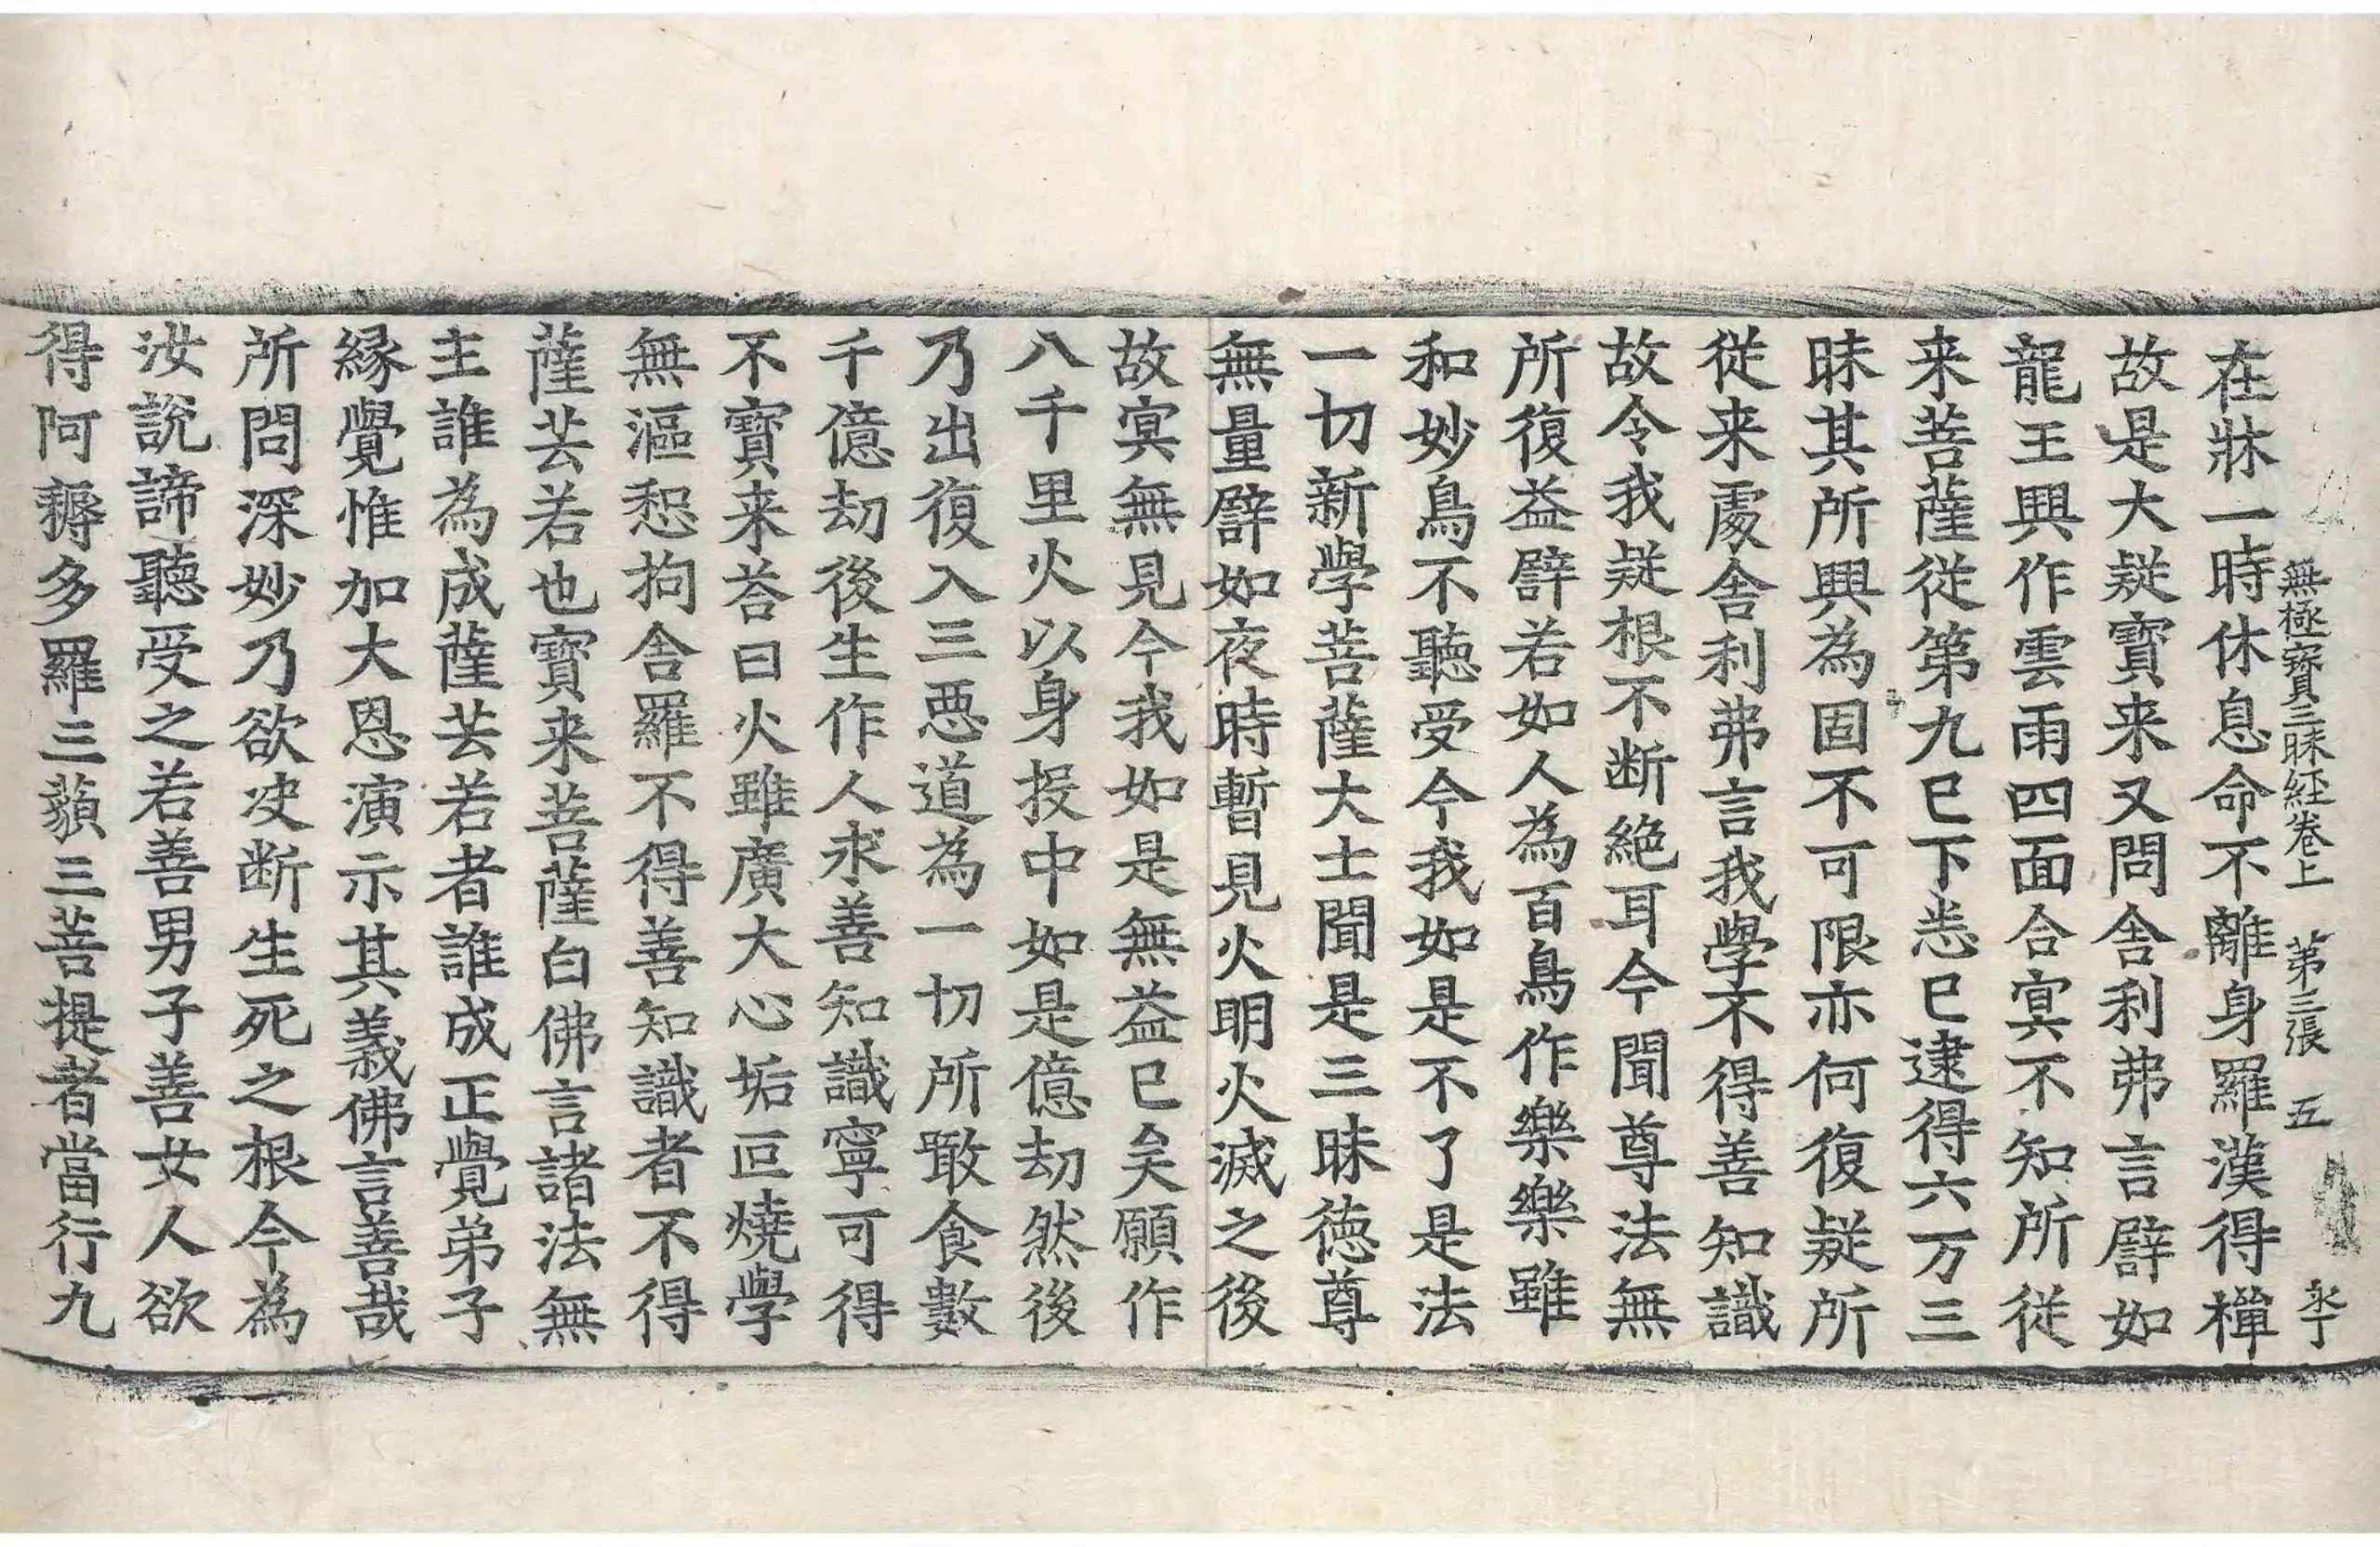 無極寶三昧経卷上 第三張 五 永丁
在牀一時休息命不離身羅漢得禪
故是大疑寳来又問舎利弗言譬如
龍王興作雲雨四面合㝠不知所従
来菩薩従第九巳下恙巳逮得六万三
昧其所興為固不可限亦何復疑所
従来䖏舎利弗言我學不得善知識
故令我疑根不断絶耳今聞尊法無
所復益譬若如人為百鳥作樂樂雖
和妙鳥不聽受今我如是不了是法
一切新學菩薩大士聞是三昧徳尊
無量譬如夜時暫見火明火滅之後
故㝠無見今我如是無益巳矣願作
八千里火以身投中如是億劫然後
乃出復入三恶道為一切所噉食數
千億劫後生作人求善知識寧可得
不寳来荅曰火雖廣大心垢叵燒學
無漚惒拘舎羅不得善知識者不得
薩芸若也寳来菩薩白佛言諸法無
主誰為成薩芸若者誰成正覺弟子
縁覺惟加大恩演示其義佛言善哉
所問深妙乃欲决断生死之根今為
汝說諦聽受之若善男子善女人欲
得阿耨多羅三藐三菩提者當行九